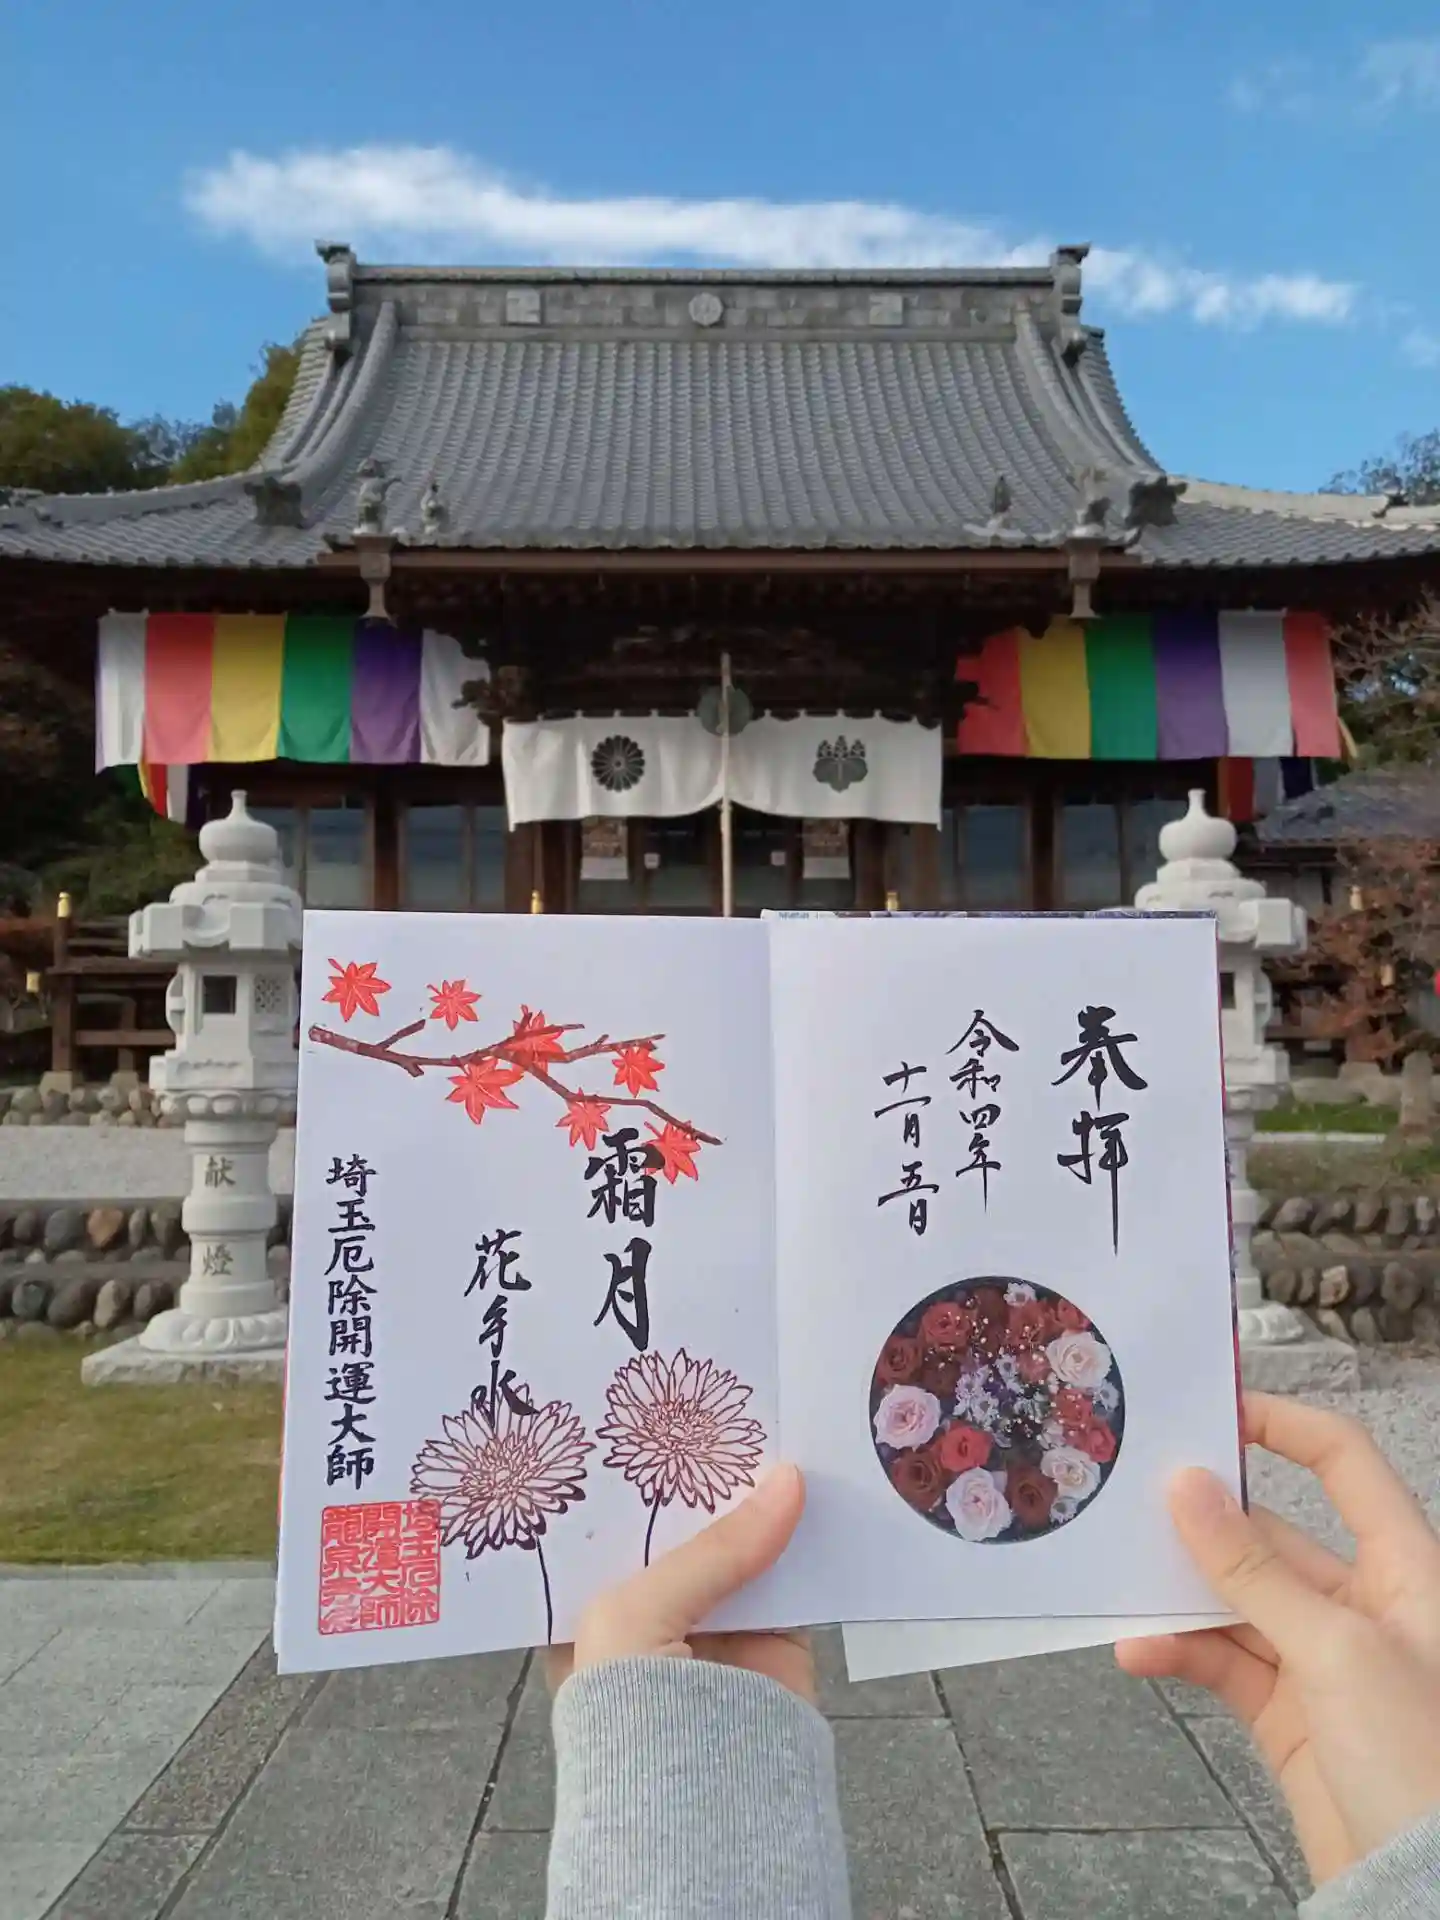 奉拝
令和四年
十一月五日
霜月
花手水
埼玉厄除開運大師
埼玉厄除
開運大師
龍泉寺
献燈